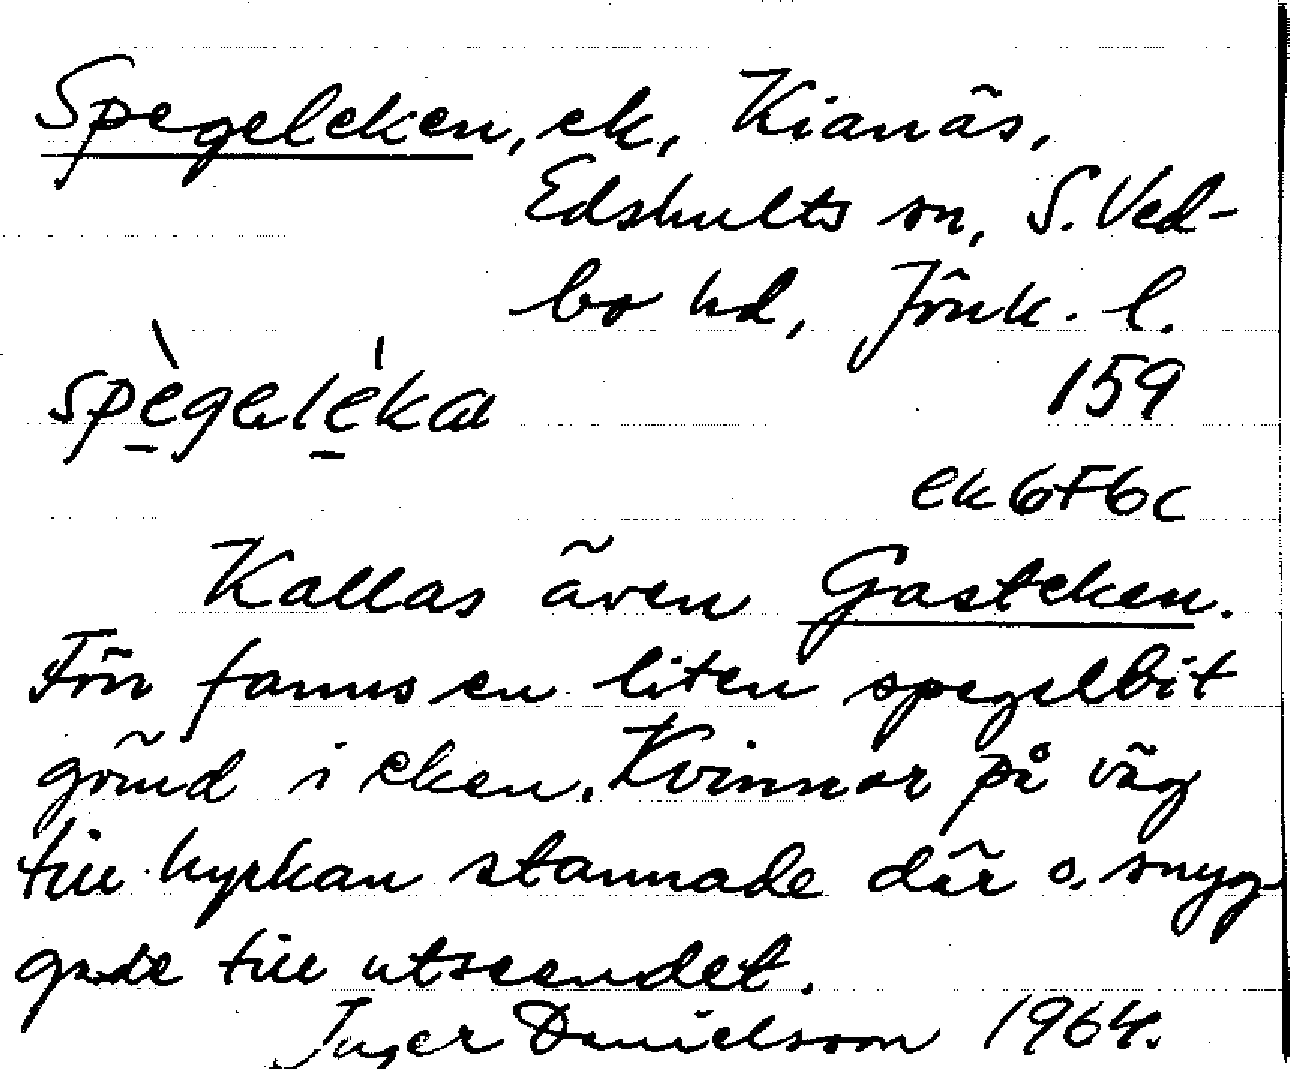 Spegeleken, ek, Kianäs,
Edshults sn, S. Ved-
bo hd, Jönk. l.
spègeléka
159
ek 6F6c
Kallas även Gasteken.
Förr fanns en liten spegelbit
gömd i eken. Kvinnor på väg
till kyrkan stannade där o. snyg-
gade till utseendet.
Inger Danielsson 1964.